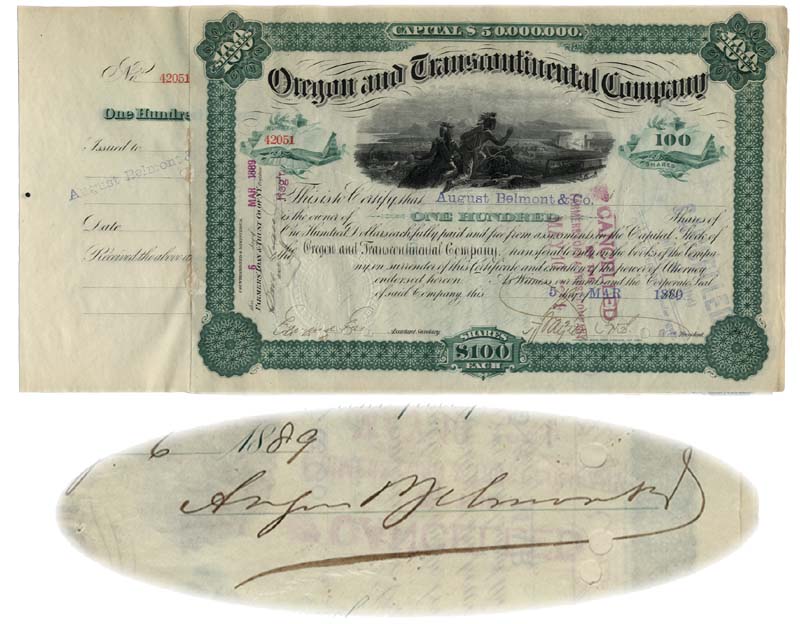 CAPITAL $50.000.000.
100
SHARES
100
SHARES
Oregon and Transcontinental Company
No.
42051
One Hundre
Issued to
August Belmont &
Date
Received the above
42051
100
SHARES
5 MAR 1889
FARMERS LOAN & TRUST COMPANY,
COUNTERSIGNED & REGISTERED.
This is to Certify that August Belmont & Co.
is the owner of ONE HUNDRED Shares of
One Hundred Dollars each, fully paid and free from assessments in the Capital Stock of
the Oregon and Transcontinental Company, transferable only on the books of the Compa-
ny, on surrender of this Certificate and execution of the power of Attorney
endorsed hereon. In Witness our hands and the Corporate Seal
of said Company, this 5 day of MAR 1889
CANCELLED
Assistant Secretary
President
SHARES
$100
EACH
6 1889
August Belmont &